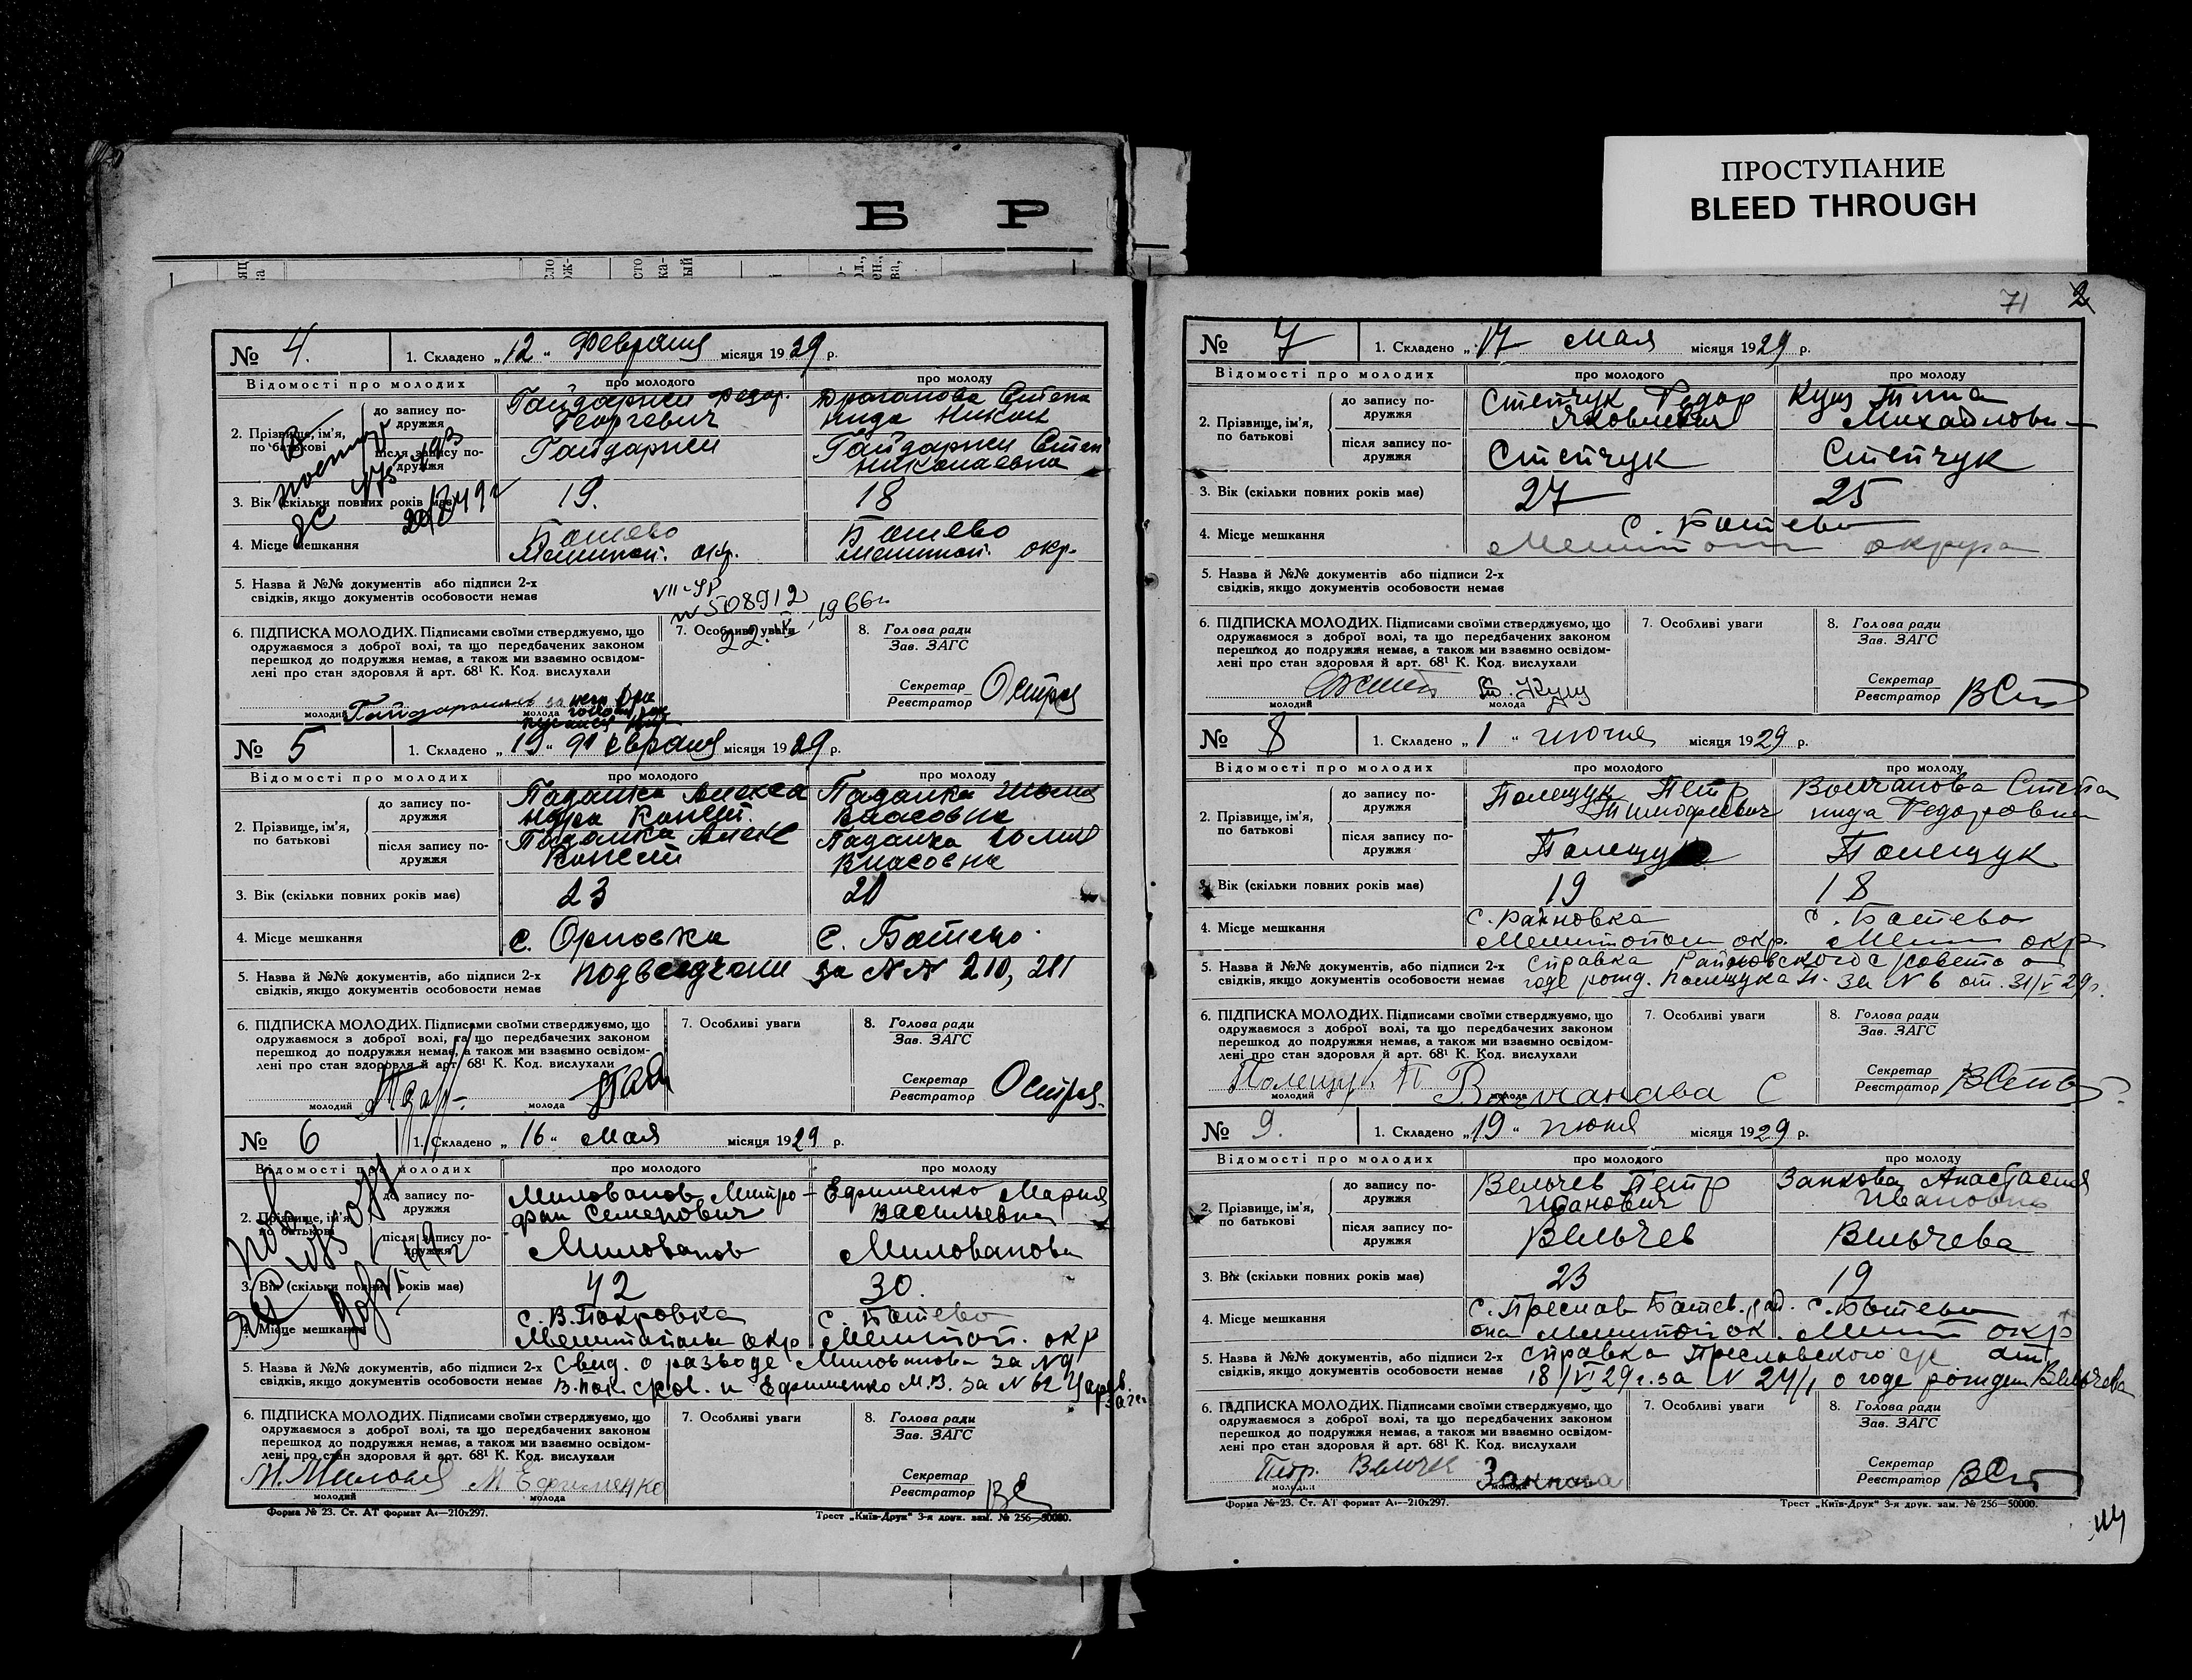 ПРОСТУПАНИЕ
BLEED THROUGH
Б Р
№ 4. 1. Складено „12“ Февраля місяця 1929 р.
Відомості про молодих про молодого про молоду
2. Прізвище, ім'я, по батькові
до запису по-
дружжя
Гайдаржи Федор.
Георгевич
Драганова Степа
нида Никол
після запису по-
дружжя
Гайдаржи
Гайдаржи Степ
Николаевна
3. Вік (скільки повних років має) 19. 18
4. Місце мешкання
Батево
Мелитоп. окр.
Батево
Мелитоп. окр.
5. Назва й №№ документів або підписи 2-х
свідків, якщо документів особовости немає
VII-ЯР
№ 508912
1966 г
6. ПІДПИСКА МОЛОДИХ. Підписами своїми стверджуємо, що
одружаємося з доброї волі, та що передбачених законом
перешкод до подружжя немає, а також ми взаємно освідом-
лені про стан здоровля й арт. 68¹ К. Код. вислухали
молодий молода
7. Особливі уваги
8. Голова ради
Зав. ЗАГС
Секретар
Реєстратор
№ 5 1. Складено „19“ Февраля місяця 1929 р.
Відомості про молодих про молодого про молоду
2. Прізвище, ім'я,
по батькові
до запису по-
дружжя
Падалка Алекса
ндра Конст.
Падалка Юлия
Власовна
після запису по-
дружжя
Падалка Алекс
Конст
Падалка Юлия
Власовна
3. Вік (скільки повних років має) 23 20
4. Місце мешкання с. Орловка с. Батево.
5. Назва й №№ документів, або підписи 2-х
свідків, якщо документів особовости немає
за № № 210, 211
6. ПІДПИСКА МОЛОДИХ. Підписами своїми стверджуємо, що
одружаємося з доброї волі, та що передбачених законом
перешкод до подружжя немає, а також ми взаємно освідом-
лені про стан здоровля й арт. 68¹ К. Код. вислухали
молодий молода
7. Особливі уваги
8. Голова ради
Зав. ЗАГС
Секретар
Реєстратор
№ 6 1. Складено „16“ мая місяця 1929 р.
Відомості про молодих про молодого про молоду
2. Прізвище, ім'я,
по батькові
до запису по-
дружжя
Милованов Митро-
фан Семенович
Ефименко Мария
Васильевна
після запису по-
дружжя
Милованов
Милованова
3. Вік (скільки повних років має) 42 30.
4. Місце мешкання
с. В. Покровка
Мелитополь окр
с. Батево
Мелитоп. окр
5. Назва й №№ документів, або підписи 2-х
свідків, якщо документів особовости немає
Свид. о разводе Милованова за №9
В. Пок. с/сов. и Ефименко М.В. за № 62
6. ПІДПИСКА МОЛОДИХ. Підписами своїми стверджуємо, що
одружаємося з доброї волі, та що передбачених законом
перешкод до подружжя немає, а також ми взаємно освідом-
лені про стан здоровля й арт. 68¹ К. Код. вислухали
М Ефименко
молодий молода
7. Особливі уваги
8. Голова ради
Зав. ЗАГС
Секретар
Реєстратор
Форма № 23. Ст. АТ формат А₄—210х297. Трест „Київ-Друк“ 3-я друк. зам. № 256—50000.
71 2
№ 7 1. Складено „17 мая місяця 1929 р.
Відомості про молодих про молодого про молоду
2. Прізвище, ім'я,
по батькові
до запису по-
дружжя
Степчук Федор
Яковлевич
Куц
Михайлови
після запису по-
дружжя
Степчук
Степчук
3. Вік (скільки повних років має) 27 25
4. Місце мешкання
с. Батево
Мелитоп округа
5. Назва й №№ документів або підписи 2-х
свідків, якщо документів особовости немає
6. ПІДПИСКА МОЛОДИХ. Підписами своїми стверджуємо, що
одружаємося з доброї волі, та що передбачених законом
перешкод до подружжя немає, а також ми взаємно освідом-
лені про стан здоровля й арт. 68¹ К. Код. вислухали
Куц
молодий молода
7. Особливі уваги
8. Голова ради
Зав. ЗАГС
Секретар
Реєстратор
№ 8 1. Складено „1“ июня місяця 1929 р.
Відомості про молодих про молодого про молоду
2. Прізвище, ім'я,
по батькові
до запису по-
дружжя
Полещук Петр
Тимофеевич
Волчанова Степа
нида Федоровна
після запису по-
дружжя
Полещук
Полещук
3. Вік (скільки повних років має) 19 18
4. Місце мешкання
с. Райновка
Мелитополь окр.
с. Батево
Мелит окр
5. Назва й №№ документів, або підписи 2-х
свідків, якщо документів особовости немає
Справка Райновского с/совета о
годе рожд. Полещука П. за № 6 от 31/V 29 г.
6. ПІДПИСКА МОЛОДИХ. Підписами своїми стверджуємо, що
одружаємося з доброї волі, та що передбачених законом
перешкод до подружжя немає, а також ми взаємно освідом-
лені про стан здоровля й арт. 68¹ К. Код. вислухали
Полещук П Волчанова С
молодий молода
7. Особливі уваги
8. Голова ради
Зав. ЗАГС
Секретар
Реєстратор
№ 9. 1. Складено „19“ июня місяця 1929 р.
Відомості про молодих про молодого про молоду
2. Прізвище, ім'я,
по батькові
до запису по-
дружжя
Вельчев Петр
Иванович
Занкова Анастасия
Ивановна
після запису по-
дружжя
Вельчев
Вельчева
3. Вік (скільки повних років має) 23 19
4. Місце мешкання
с. Преслав Батев. рай.
она Мелитоп ок.
с. Батево
Мелит окр
5. Назва й №№ документів, або підписи 2-х
свідків, якщо документів особовости немає
Справка Преславского с/с от
18/VI 29 г. за № 24/1 о годе рожден Вельчева
6. ПІДПИСКА МОЛОДИХ. Підписами своїми стверджуємо, що
одружаємося з доброї волі, та що передбачених законом
перешкод до подружжя немає, а також ми взаємно освідом-
лені про стан здоровля й арт. 68¹ К. Код. вислухали
Петр. Вельчев Занкова
молодий молода
7. Особливі уваги
8. Голова ради
Зав. ЗАГС
Секретар
Реєстратор
Форма № 23. Ст. АТ формат А₄—210х297. Трест „Київ-Друк“ 3-я друк. зам. № 256—50000.